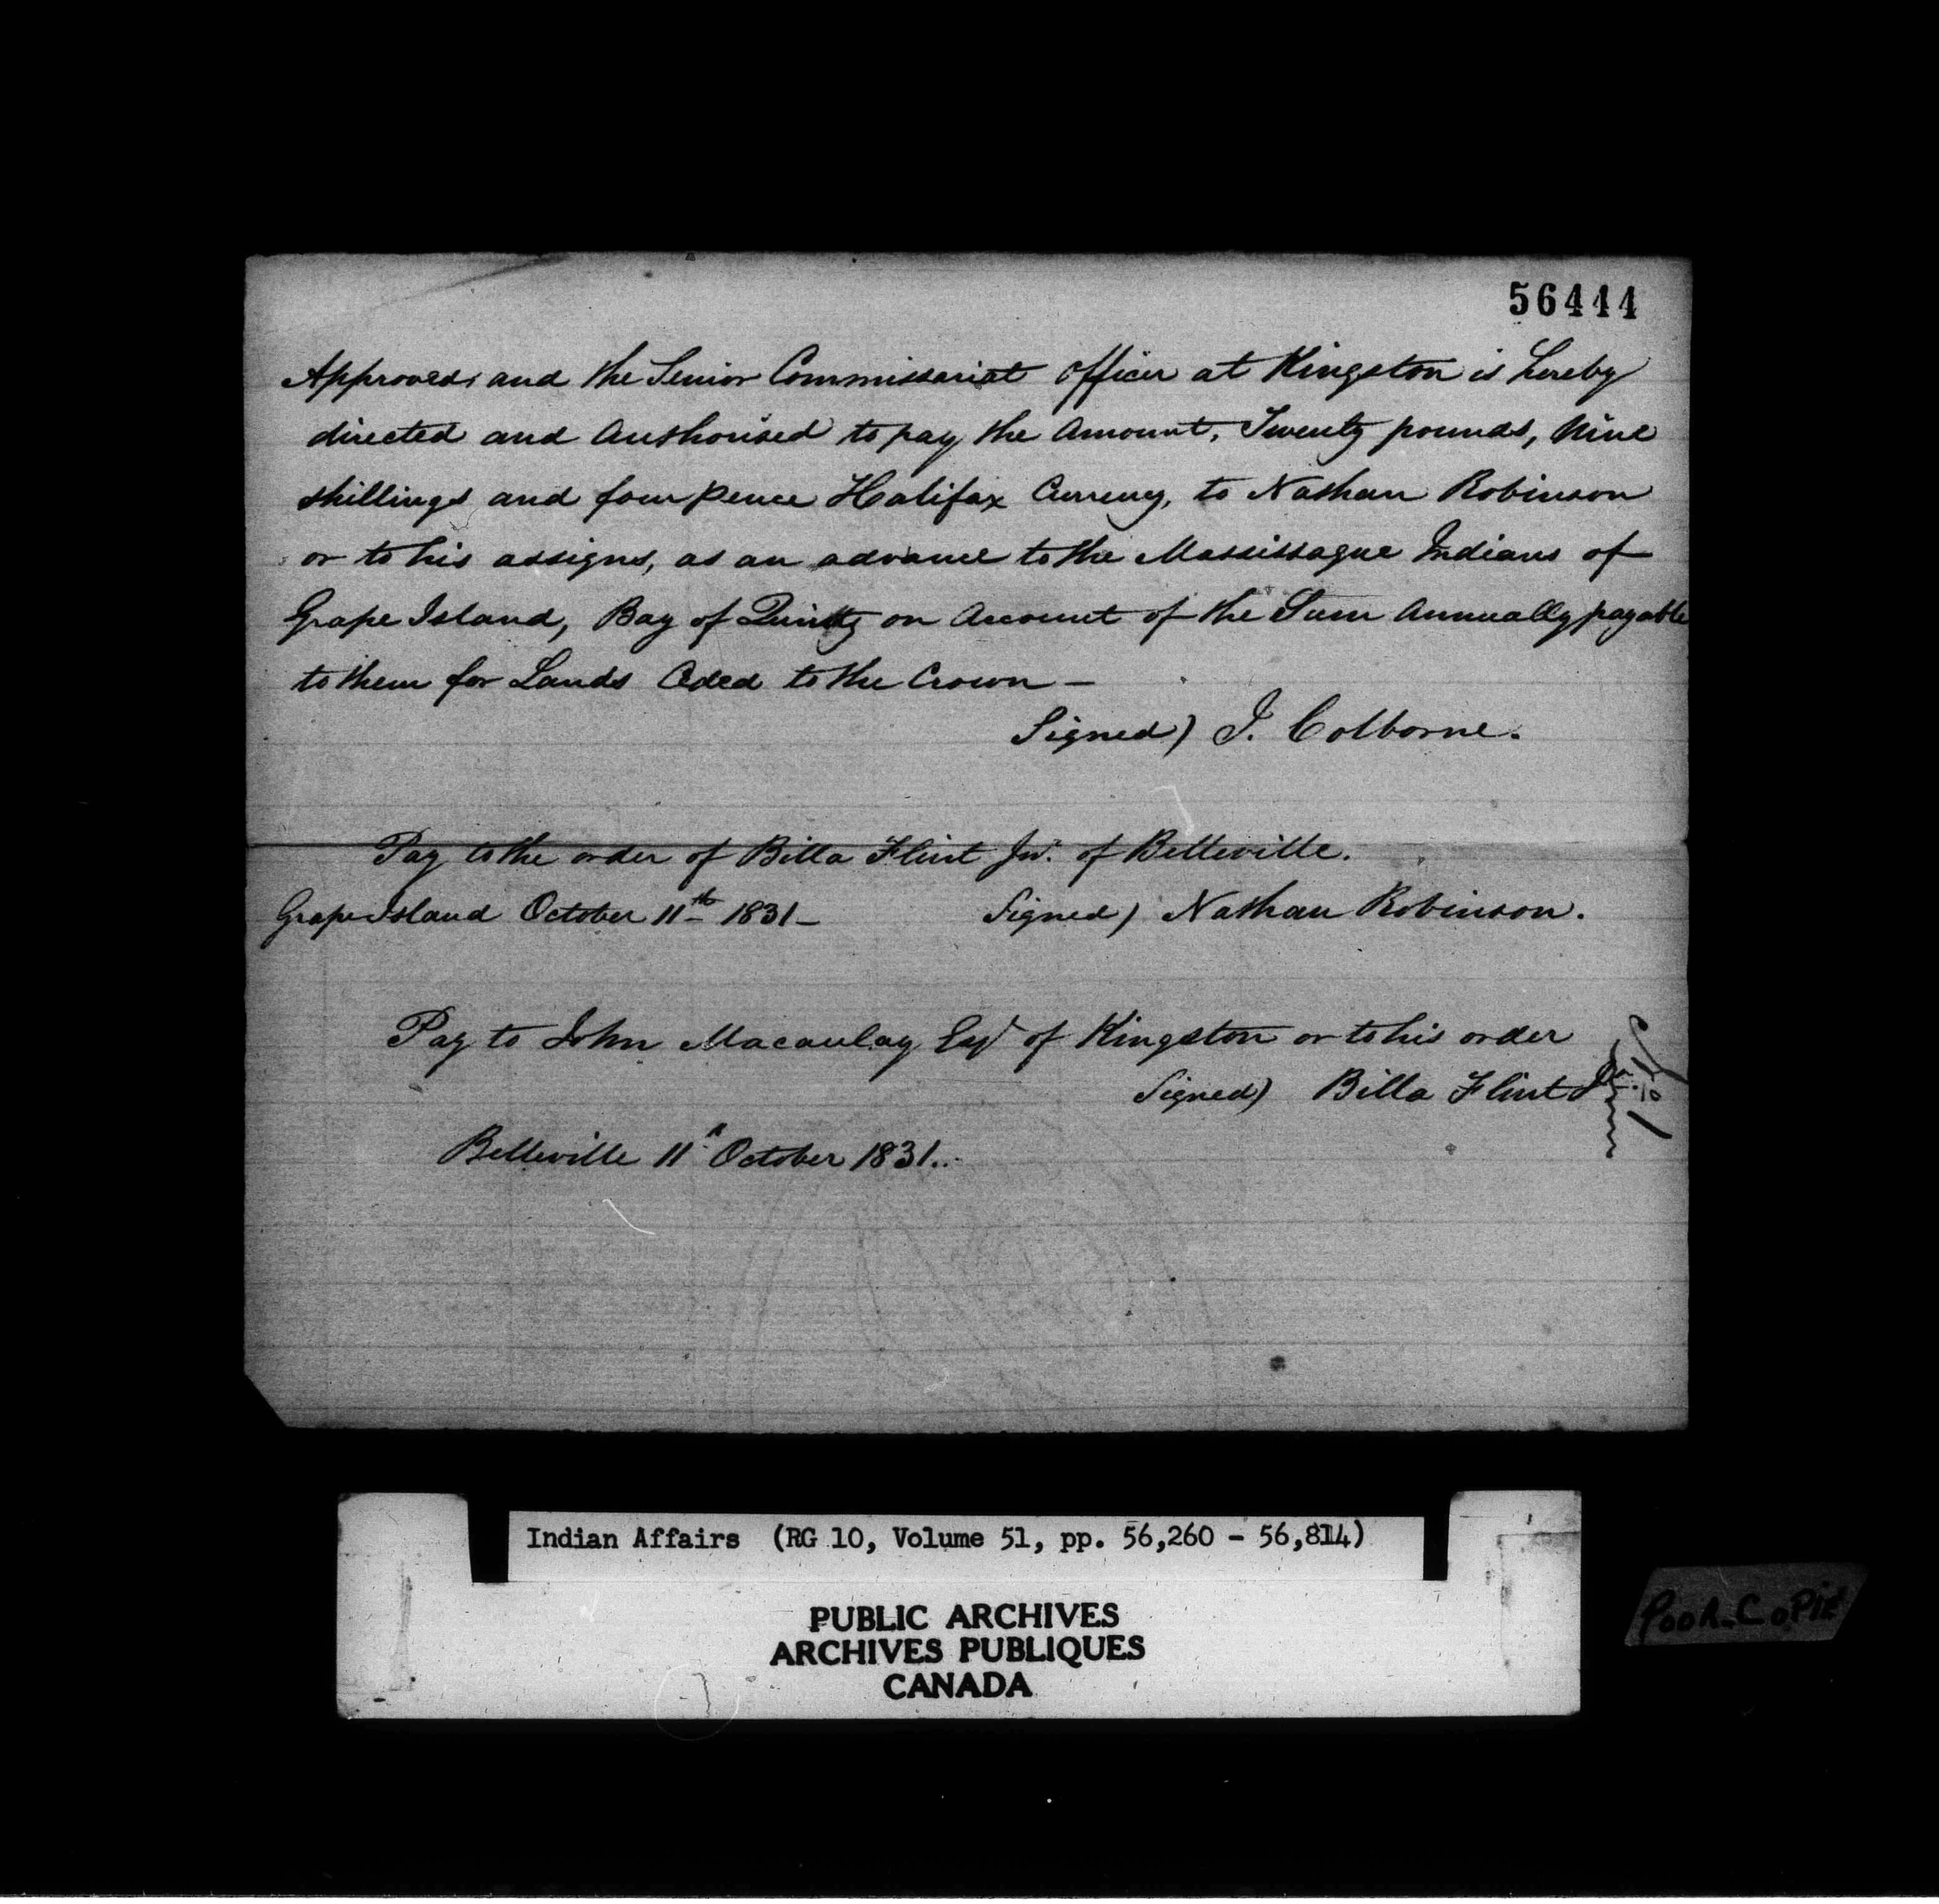 56444
Approved, and the Senior Commissariat Officer at Kingston is hereby
directed and Authorised to pay the Amount, Twenty pounds, Nine
shillings and four pence Halifax Currency, to Nathan Robinson
or to his assigns, as an advance to the Massissague Indians of
Grape Island, Bay of Quinty on Account of the Sum Annually payable
to them for Lands Ceded to the Crown —
Signed) J. Colborne.
Pay to the order of Billa Flint Jnr. of Belleville.
Grape Island October 11th 1831 —
Signed) Nathan Robinson.
Pay to John Macaulay Esqr of Kingston or to his order
Signed) Billa Flint Jr
Belleville 11th October 1831..
Indian Affairs (RG 10, Volume 51, pp. 56,260 - 56,814)
PUBLIC ARCHIVES
ARCHIVES PUBLIQUES
CANADA
POOR COPIE